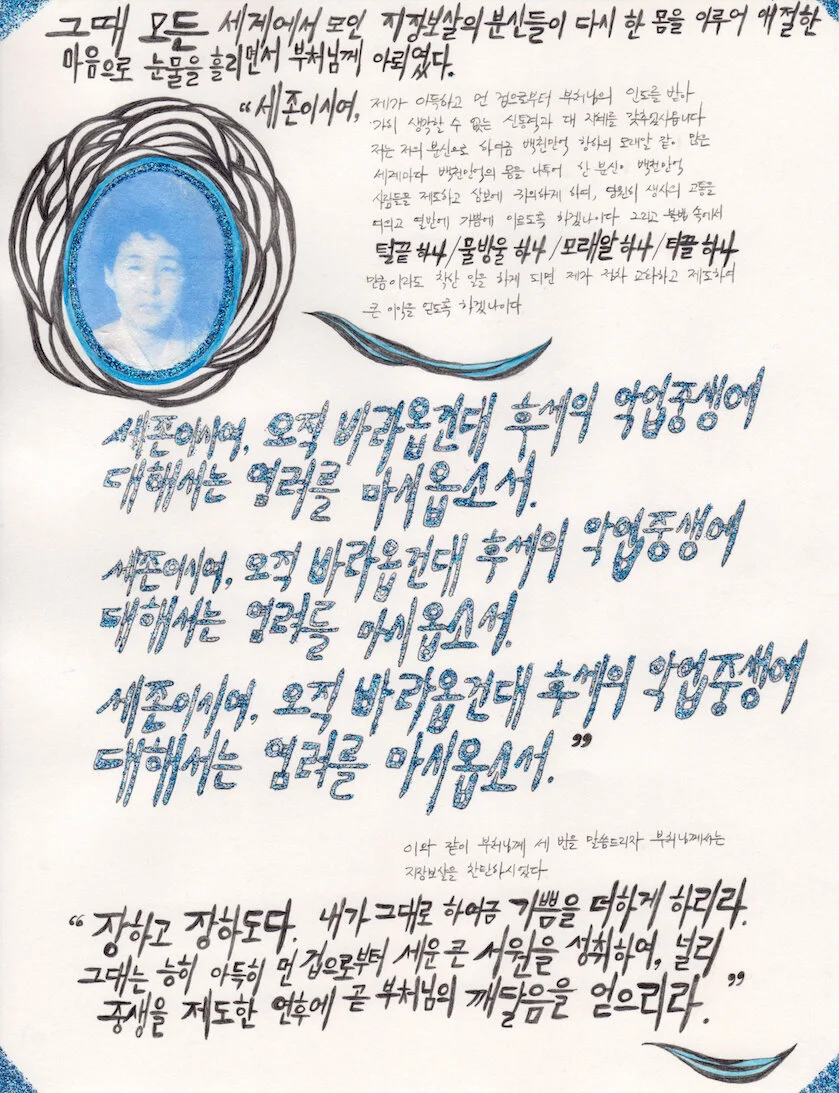 그때 모든 세계에서 모인 지장보살의 분신들이 다시 한 몸을 이루어 애절한
마음으로 눈물을 흘리면서 부처님께 아뢰었다.
“세존이시여,
제가 아득하고 먼 겁으로부터 부처님의 인도를 받아
가히 생각할 수 없는 신통력과 대 지혜를 갖추었사옵니다
저는 저의 분신으로 하여금 백천만억 항하의 모래알 같이 많은
세계마다 백천만억의 몸을 나투어 한 분신이 백천만억
사람들을 제도하고 삼보에 귀의하게 하며, 영원히 생사의 고통을
여의고 열반에 기쁨에 이르도록 하겠나이다 그리고 불법 속에서
털끝 하나/물방울 하나/모래알 하나/티끌 하나
만큼이라도 착한 일을 하게 되면 제가 점차 교화하고 제도하여
큰 이익을 얻도록 하겠나이다
세존이시여, 오직 바라옵건대 후세의 악업중생에
대해서는 염려를 마시옵소서.
세존이시여, 오직 바라옵건대 후세의 악업중생에
대해서는 염려를 마시옵소서.
세존이시여, 오직 바라옵건대 후세의 악업중생에
대해서는 염려를 마시옵소서.”
이와 같이 부처님께 세 번을 말씀드리자 부처님께서는
지장보살을 찬탄하시었다
“장하고 장하도다. 내가 그대로 하여금 기쁨을 더하게 하리라.
그대는 능히 아득히 먼 겁으로부터 세운 큰 서원을 성취하여, 널리
중생을 제도한 연후에 곧 부처님의 깨달음을 얻으리라.”